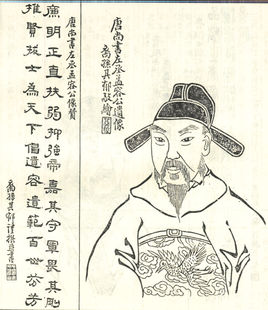 唐尚書左丞孟容公遺像
裔孫其郁敬繪
唐尚書左丞孟容公像贊
廉明正直扶弱抑強帝嘉其守軍畏其剛
推賢拔士為天下倡遺容遺範百世芬芳
裔孫其郁謹撰并書